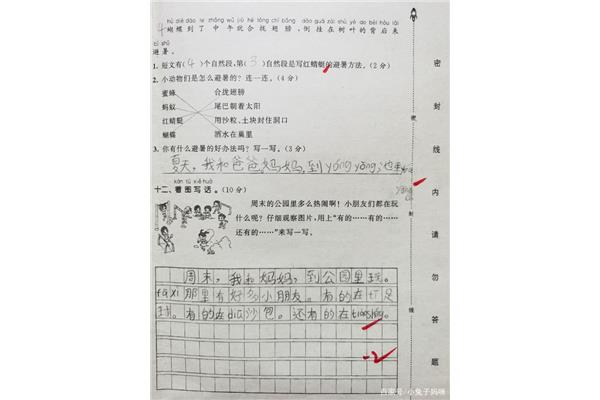 hú dié dào le zhōng wǔ jiù hé lǒng chì bǎng dào guà zài shù yè de bèi hòu lái
4 蝴蝶到了中午就合拢翅膀，倒挂在树叶的背后来
bì shǔ
避暑。
1. 短文有(4)个自然段，第(3)自然段是写红蜻蜓的避暑方法。(2分)
2. 小动物们是怎么避暑的？连一连。(4分)
蜜蜂 合拢翅膀
蚂蚁 尾巴朝着太阳
红蜻蜓 用沙粒、土块封住洞口
蝴蝶 洒水在巢里
3. 你有什么避暑的好办法吗？写一写。(3分)
夏天，我和爸爸妈妈，到yóng yǒng，也
kàn tú xiě huà
十二、看图写话。(10分)
周末的公园里多么热闹啊！小朋友们都在玩
什么呢？仔细观察图片，用上“有的……有的……
还有的……”来写一写。
周末，我和妈妈，到公园里玩。
fa xi 那里有好多小朋友。有的在打足
球。有的在diū沙包。还有的在tiaoshéng。
-2
密封线内请勿答题
密 封 线
百家号/小兔子妈咪